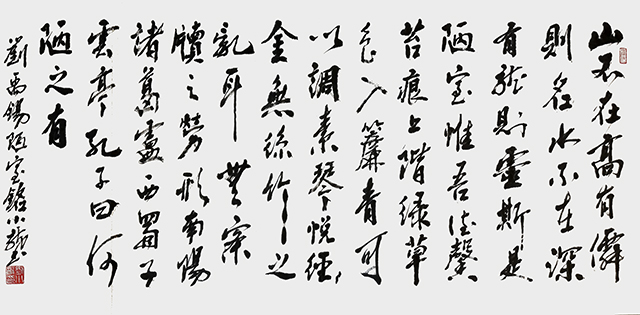 山不在高有僊
則名水不在深
有龍則靈斯是
陋室惟吾德馨
苔痕上階绿草
色入簾青可
以調素琴悦經
金無絲竹之
亂耳無案
牘之勞形南陽
諸葛盧西蜀子
雲亭孔子曰何
陋之有
劉禹錫陋室銘